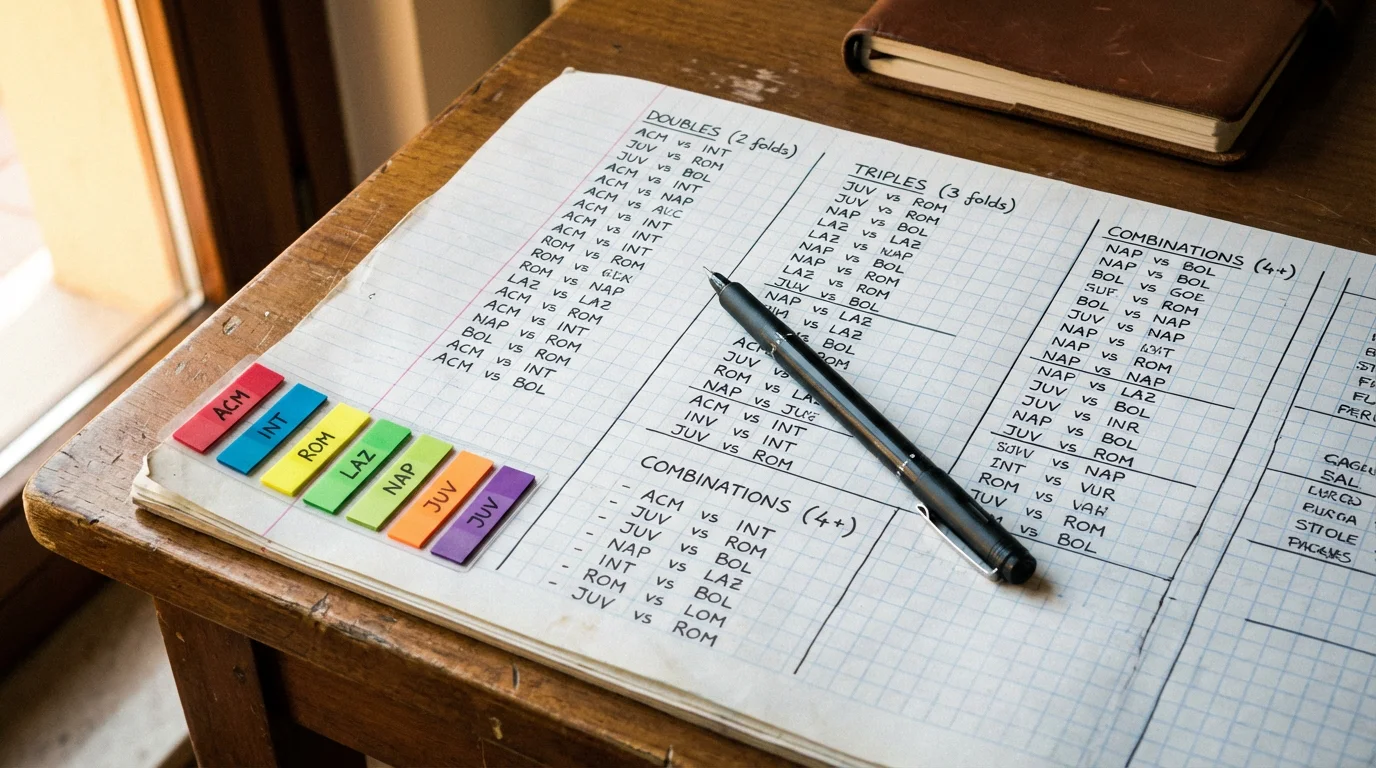 DOUBLES (2 folds)
ACM vs INT
JUV vs ROM
JUV vs BOL
ACM vs INT
ACM vs NAP
ACM vs
ACM vs INT
ACM vs INT
ROM vs ROM
ROM vs
ROM vs NAP
LAZ vs LAZ
ACM vs ROM
ACM vs INT
NAP vs ROM
BOL vs ROM
ACM vs INT
ACM vs BOL
ACM
INT
ROM
LAZ
NAP
JUV
JUV
TRIPLES (3 folds)
JUV vs ROM
JUV vs ROM
NAP vs BOL
LAZ vs LAZ
LAZ vs
NAP vs BOL
NAP vs ROM
LAZ vs ROM
JUV vs BOL
NAP vs LAZ
vs LAZ
vs BOL
ROM
JUV
ROM vs
NAP vs
ACM vs INT
INV vs INT
JUV vs ROM
COMBINATIONS (4+)
- ACM vs INT
- JUV vs ROM
- JUV vs BOL
- NAP vs LAZ
- INT vs BOL
- ROM vs LOM
JUV vs ROM
COMBINATIONS (4+)
NAP vs BOL
NAP vs BOL
BOL vs GOE
vs ROM
BOL vs NAP
JUV vs NAP
NAP vs
NAP vs ROM
NAP vs NAP
NAP vs LAZ
JUV vs BOL
JUV vs INR
NAP vs BOL
JUV vs ROM
vs NAP
INT vs VUR
ROM vs
vs ROM
vs BOL
SAL
STTOLE